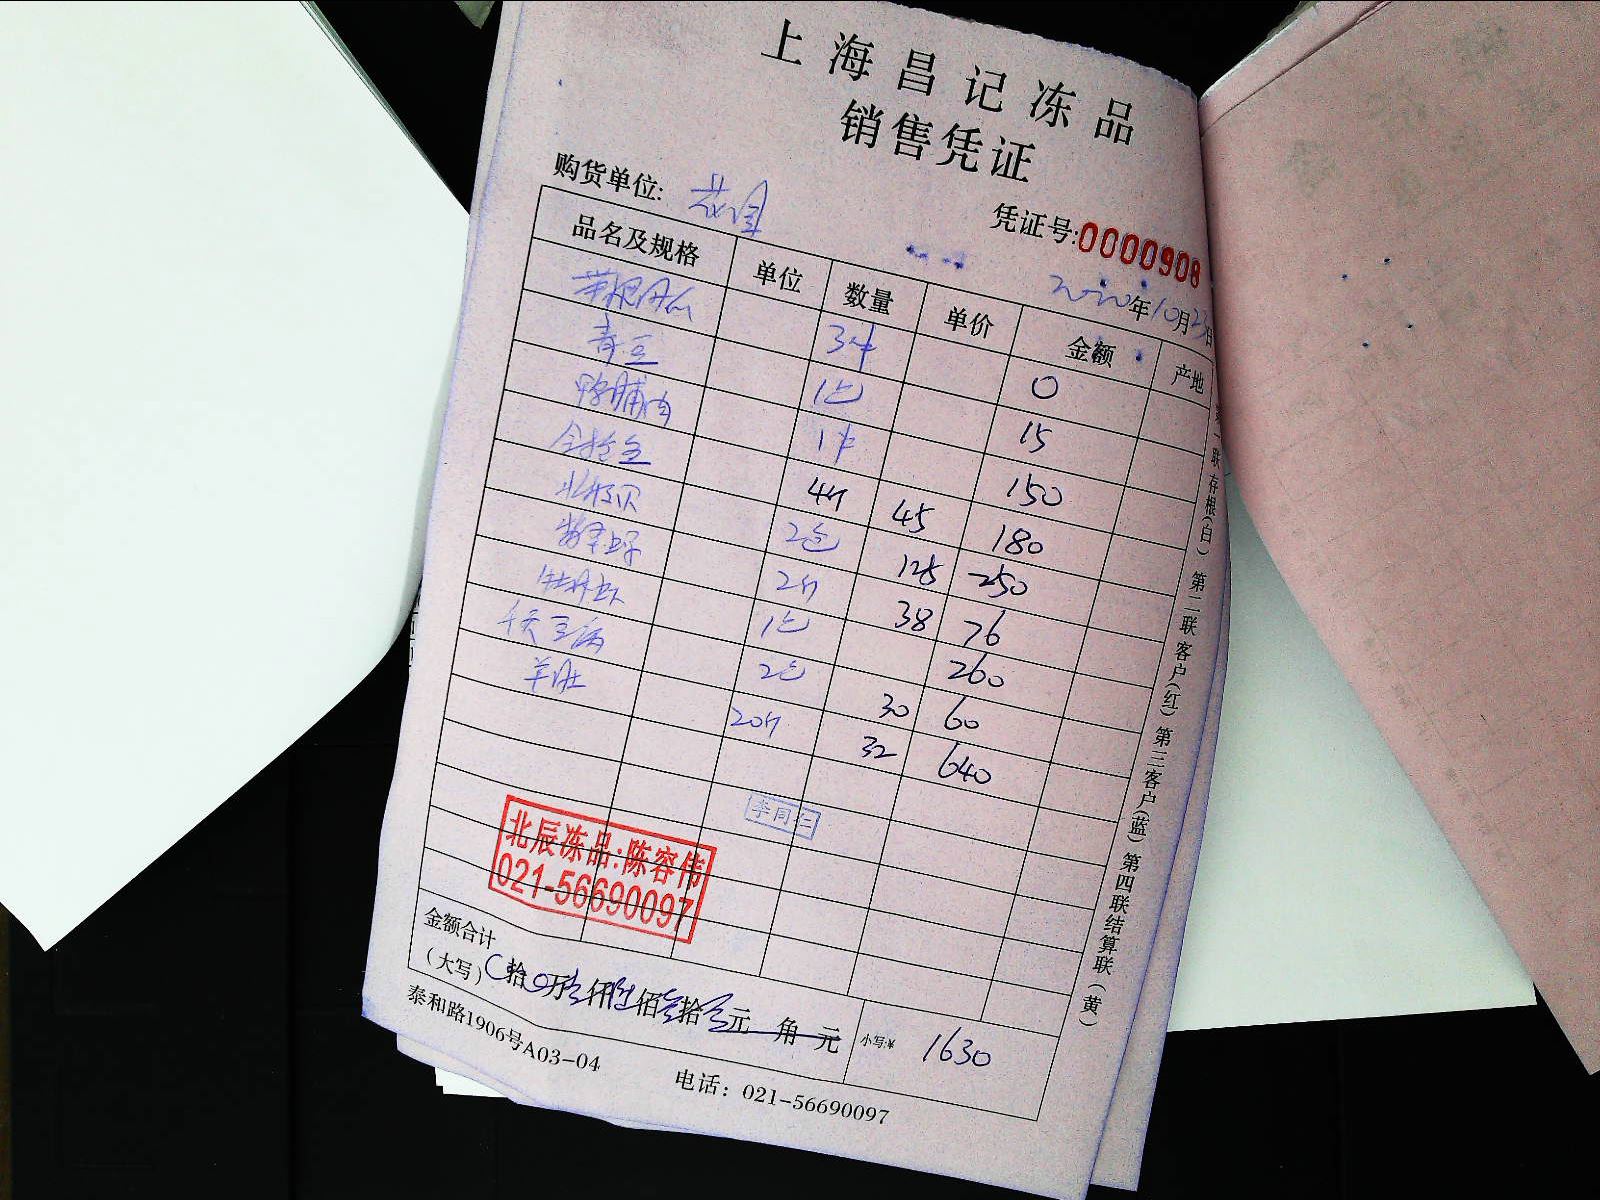 上海昌记冻品
销售凭证
购货单位: 花園
凭证号:0000908
2020年10月23日
品名及规格 单位 数量 单价 金额 产地
3件 0
青豆 1包 15
鸭脯肉 1件 150
金枪鱼 4斤 45 180
北极贝 2包 125 250
2斤 38 76
1包 260
千页豆腐 2包 30 60
羊肚 20斤 32 640
李同仁
北辰冻品:陈容伟
021-56690097
金额合计
(大写) 拾 万 仟 佰 拾 元 角 元 小写:¥ 1630
泰和路1906号A03-04 电话: 021-56690097
联存根(白) 第二联客户(红) 第三客户(蓝) 第四联结算联(黄)